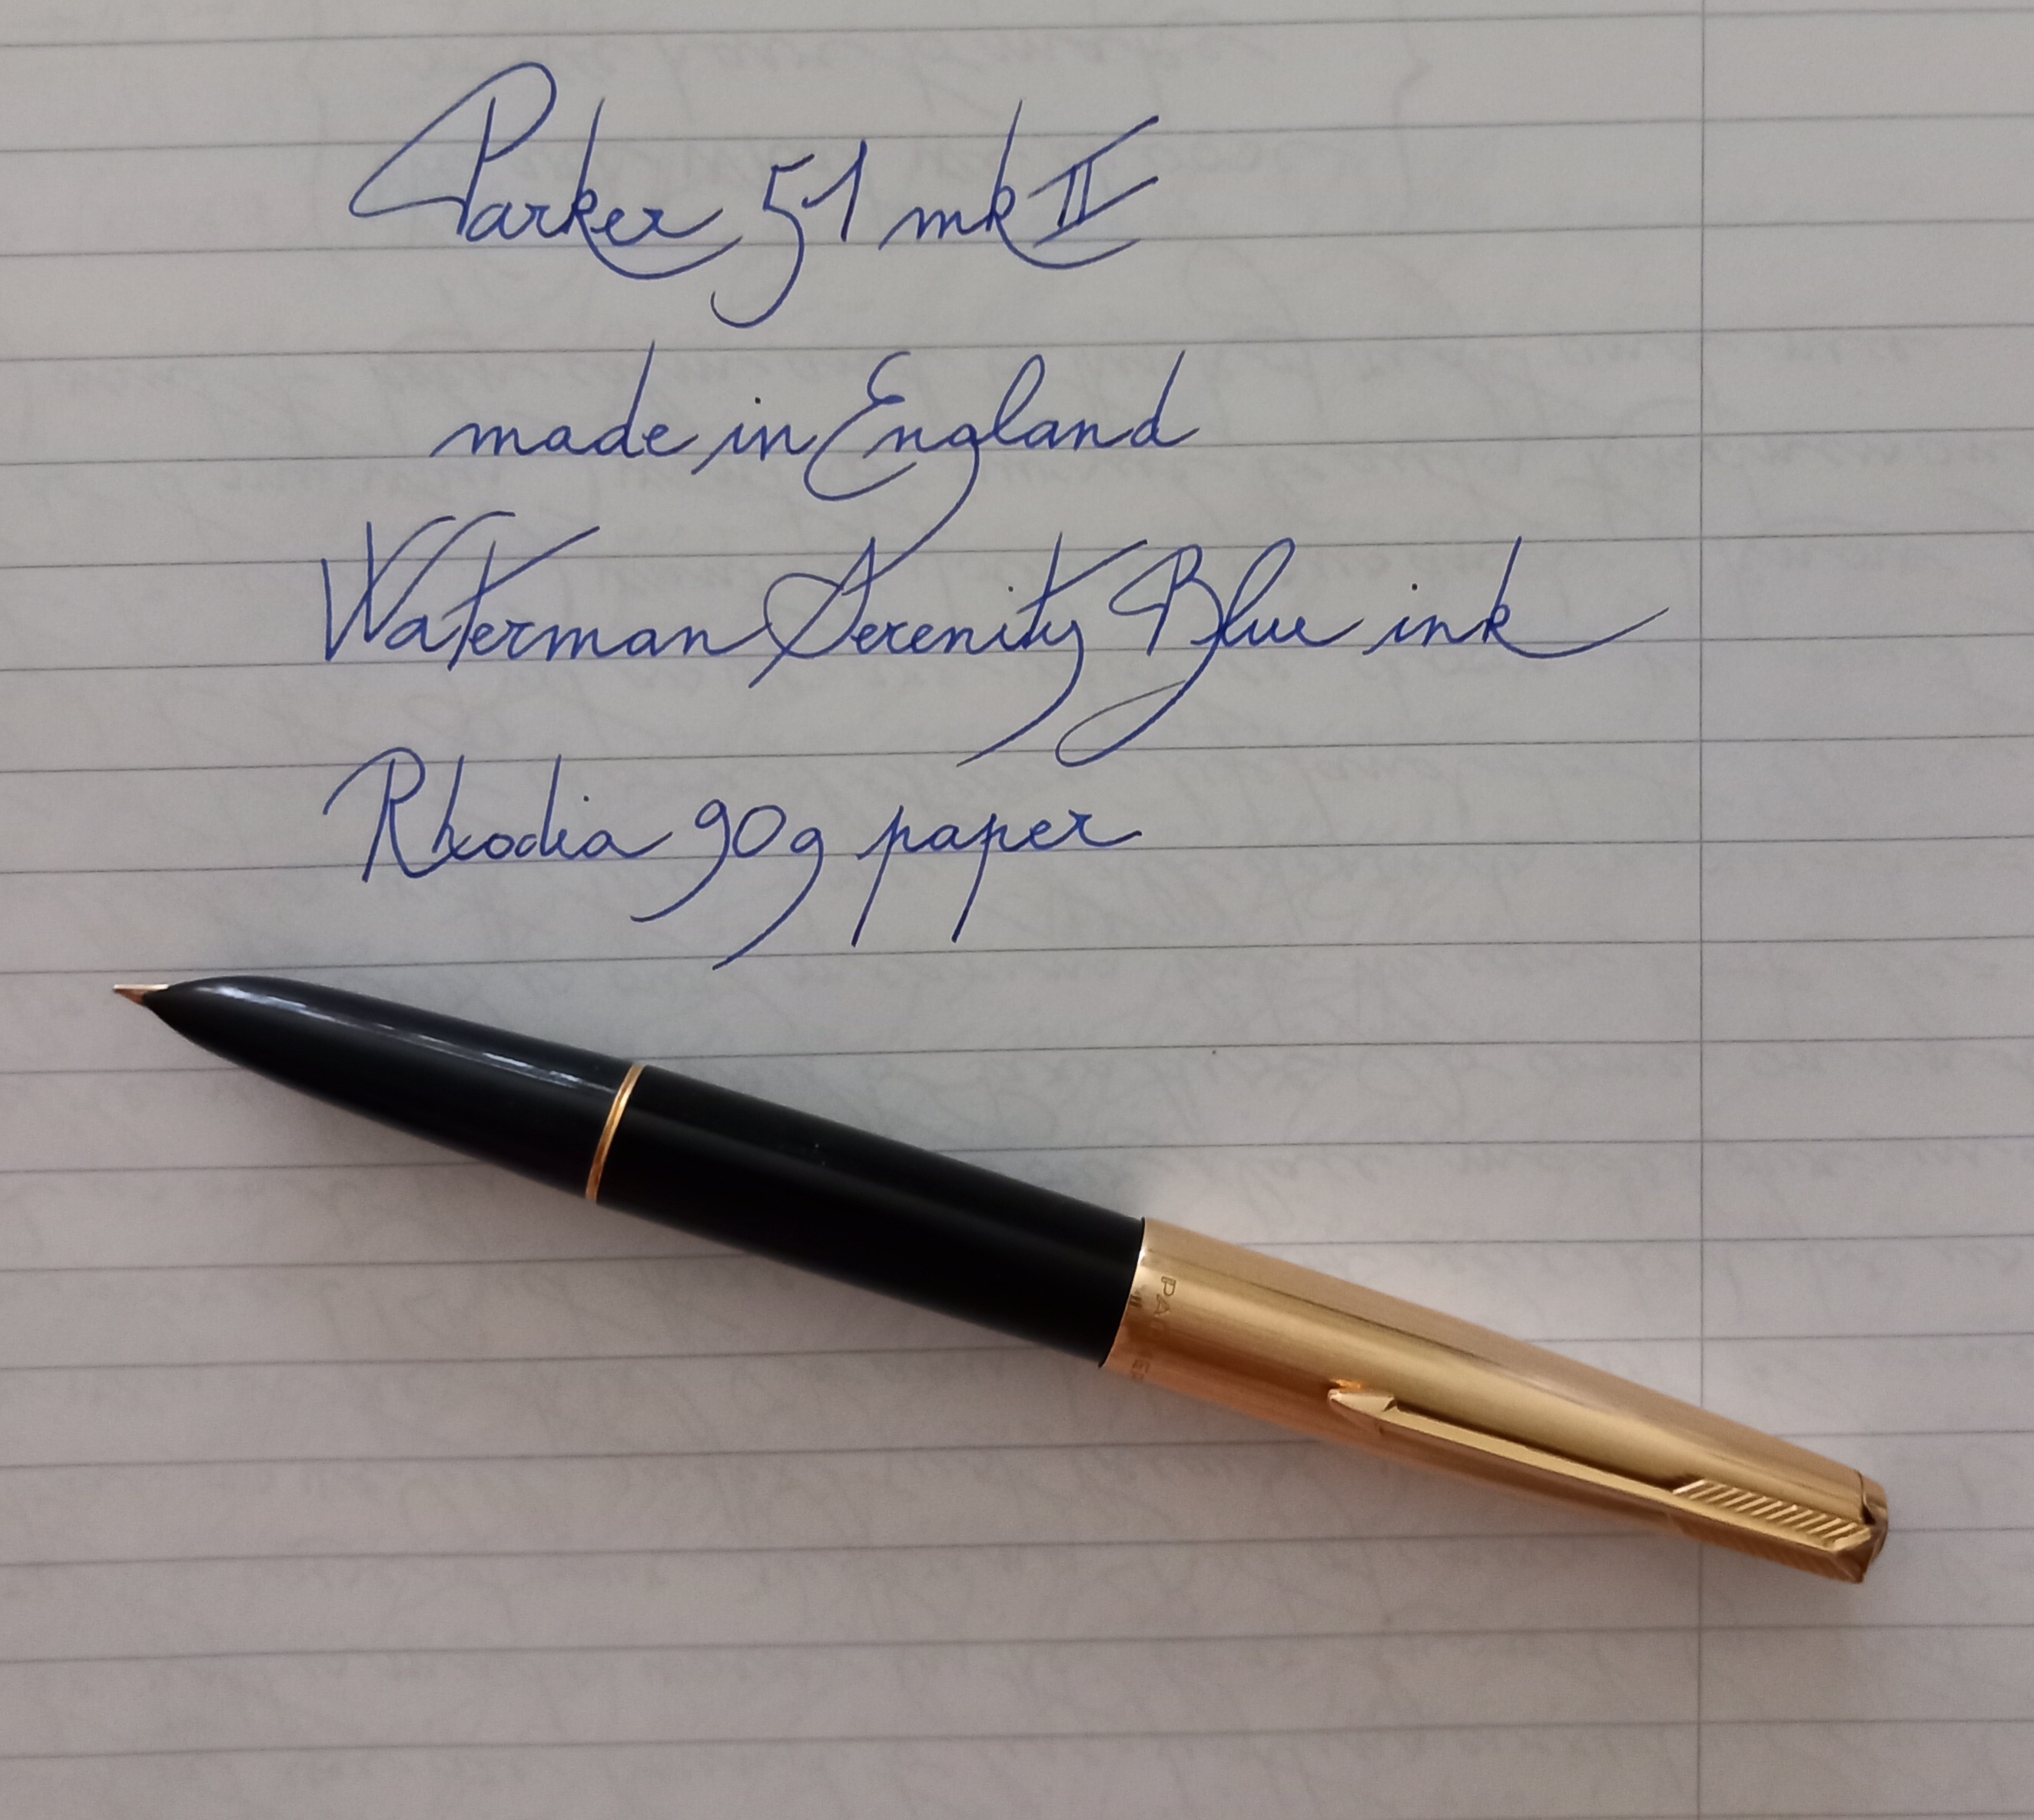 Parker 51 mk II
made in England
Waterman Serenity Blue ink
Rhodia 90g paper
PARKER